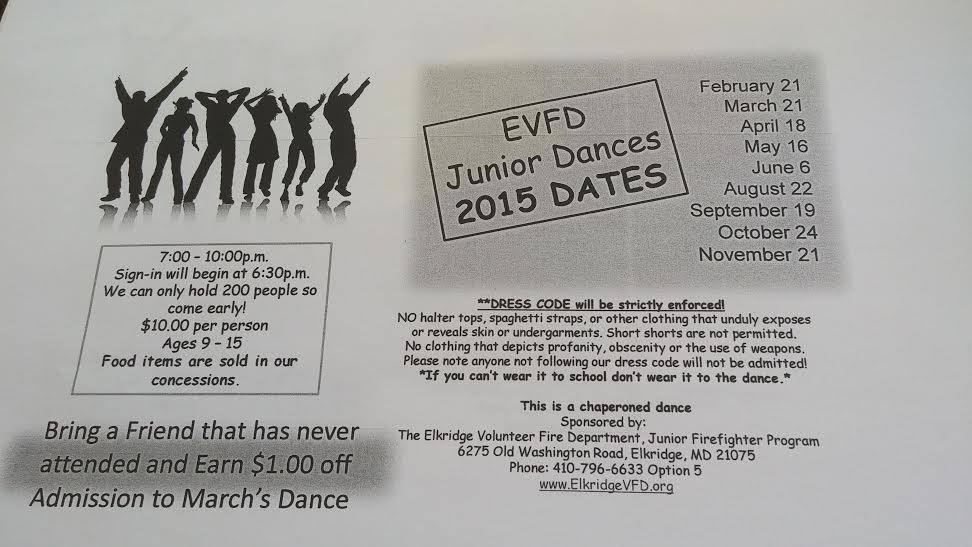 EVFD
Junior Dances
2015 DATES
February 21
March 21
April 18
May 16
June 6
August 22
September 19
October 24
November 21
7:00 – 10:00p.m.
Sign-in will begin at 6:30p.m.
We can only hold 200 people so
come early!
$10.00 per person
Ages 9 – 15
Food items are sold in our
concessions.
Bring a Friend that has never
attended and Earn $1.00 off
Admission to March's Dance
**DRESS CODE will be strictly enforced!
NO halter tops, spaghetti straps, or other clothing that unduly exposes
or reveals skin or undergarments. Short shorts are not permitted.
No clothing that depicts profanity, obscenity or the use of weapons.
Please note anyone not following our dress code will not be admitted!
*If you can't wear it to school don't wear it to the dance.*
This is a chaperoned dance
Sponsored by:
The Elkridge Volunteer Fire Department, Junior Firefighter Program
6275 Old Washington Road, Elkridge, MD 21075
Phone: 410-796-6633 Option 5
www.ElkridgeVFD.org